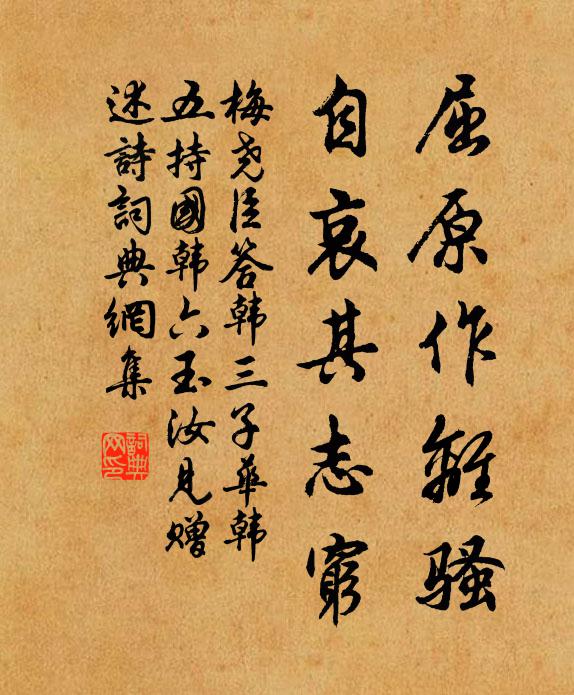 屈原作離骚
自哀其志窮
梅尧臣答韩三子華韩
五持國韩六玉汝見赠
述詩詞典網集
詞典网印